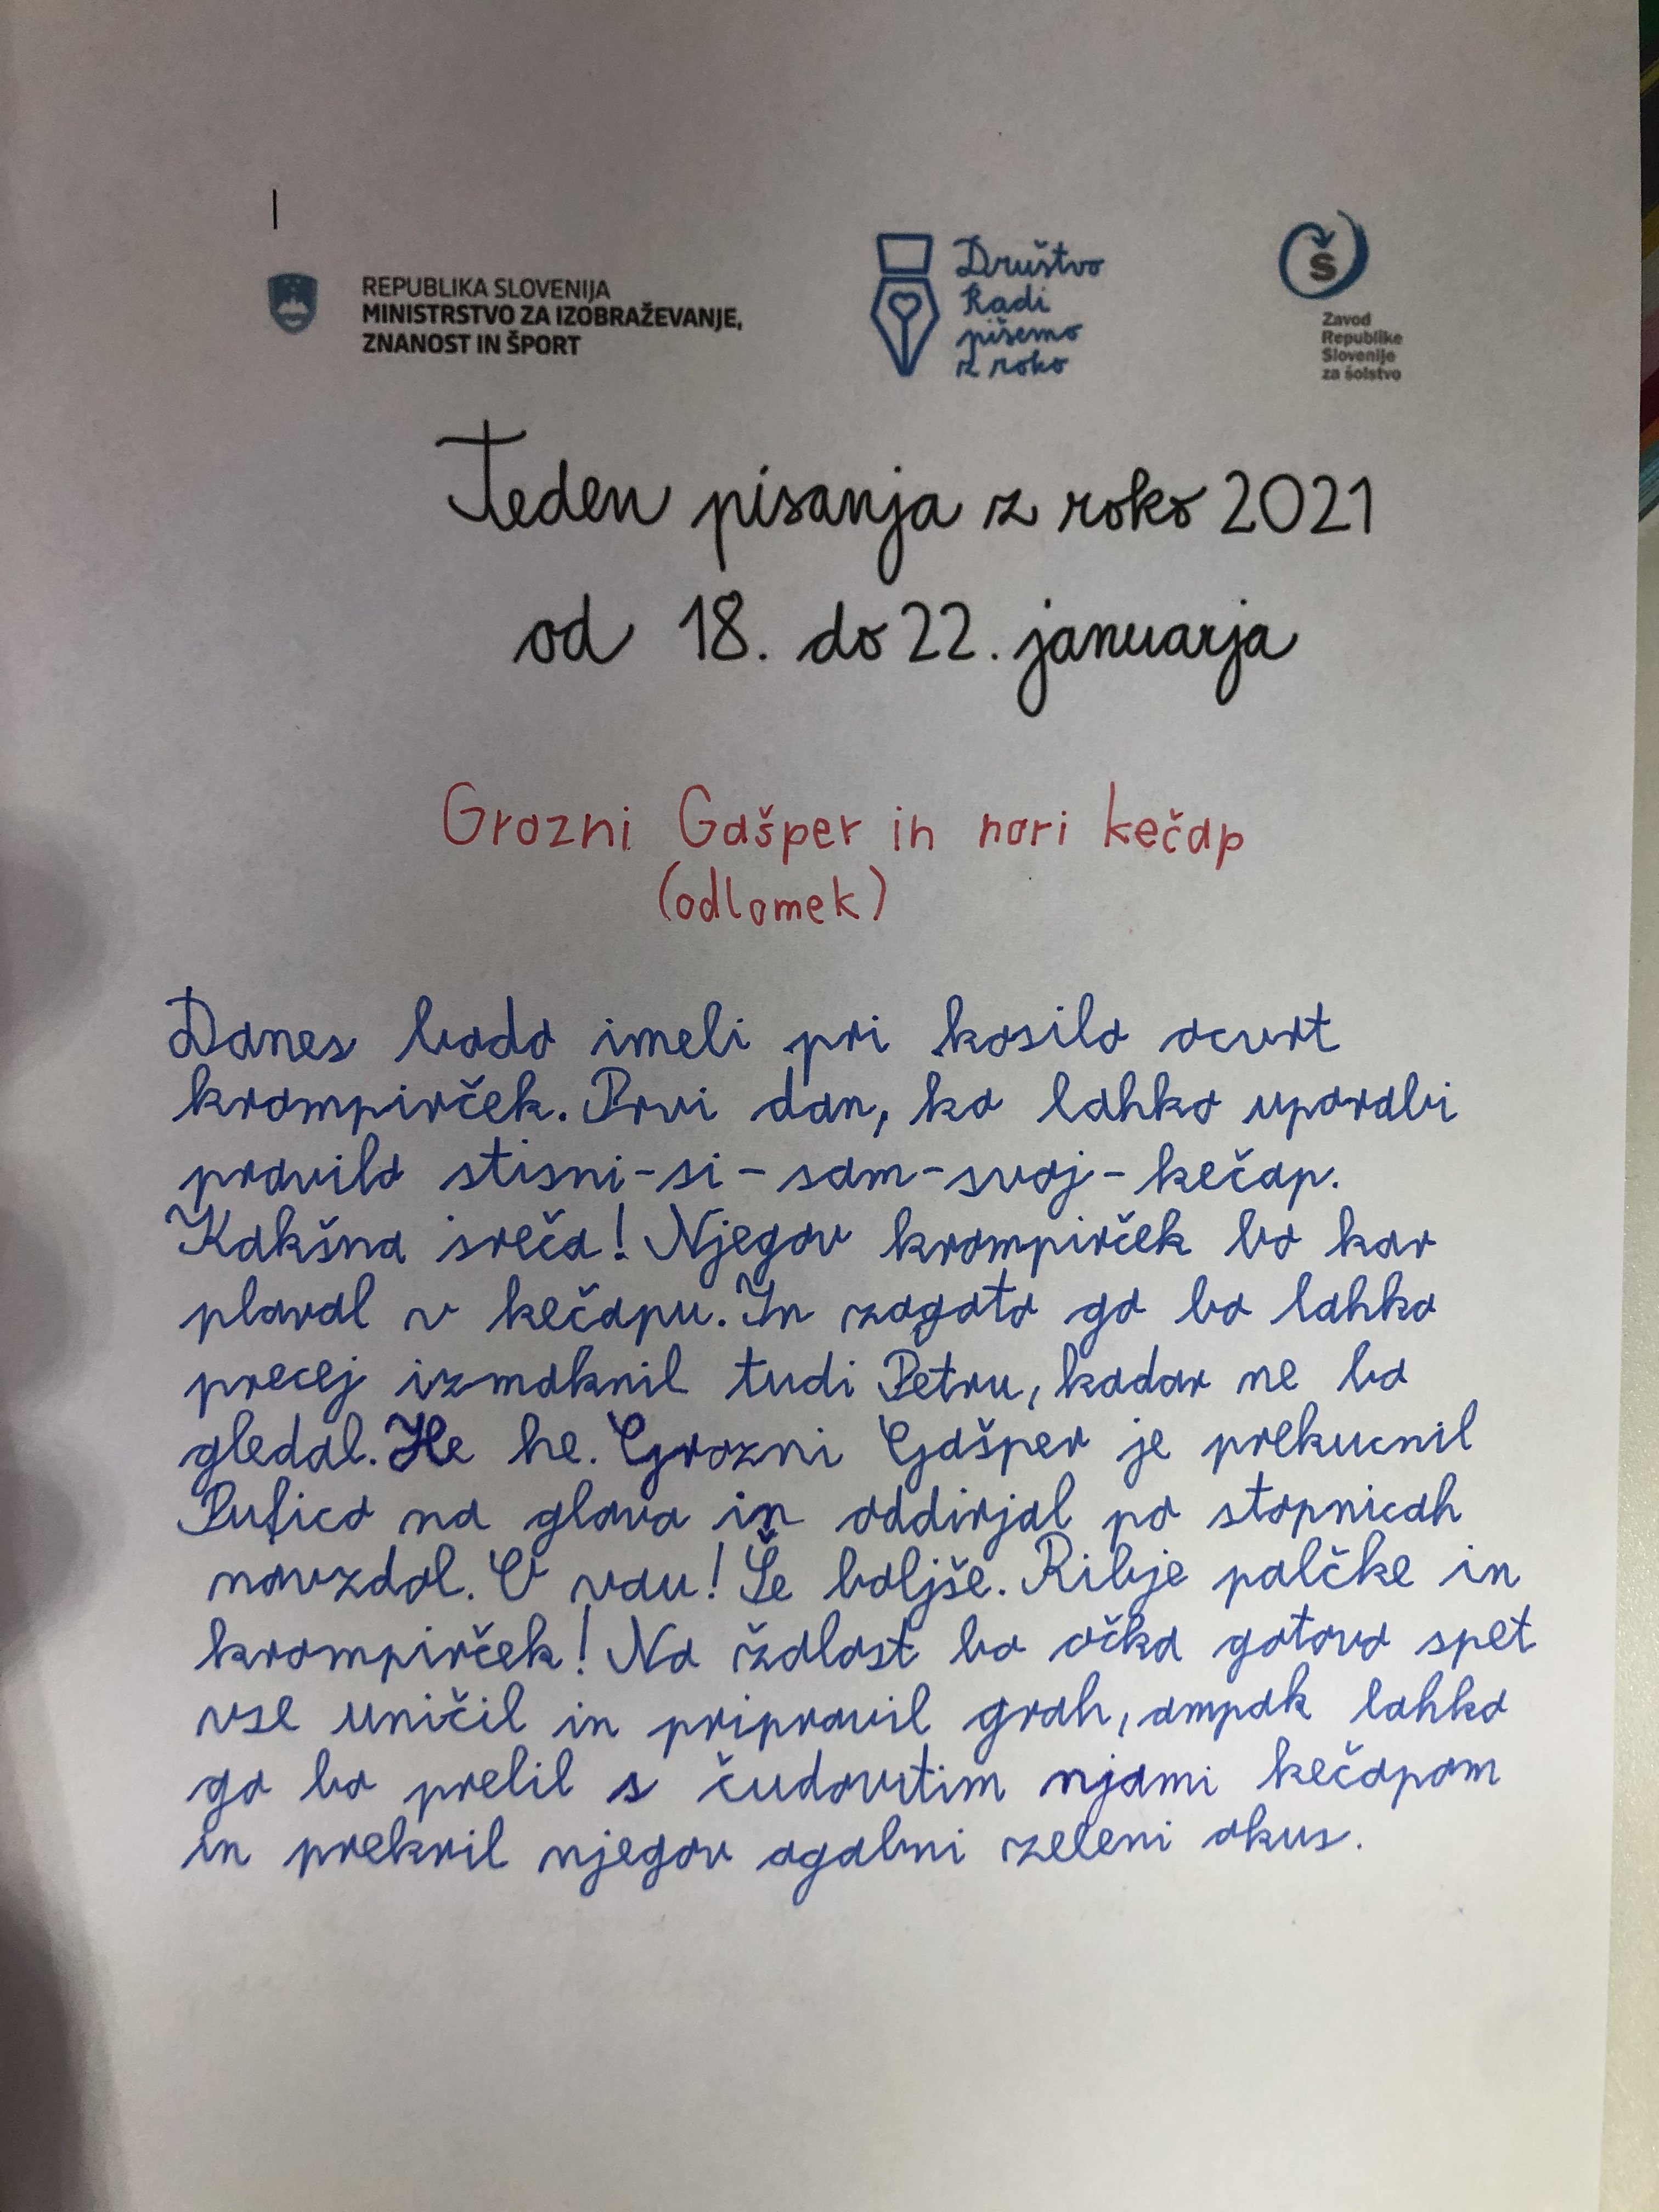 REPUBLIKA SLOVENIJA
MINISTRSTVO ZA IZOBRAŽEVANJE,
ZNANOST IN ŠPORT
Društvo
Radi
pišemo
z roko
Š
Zavod
Republike
Slovenije
za šolstvo
Teden pisanja z roko 2021
od 18. do 22. januarja
Grozni Gašper in nori kečap
(odlomek)
Danes bodo imeli pri kosilo ocvrt
krompirček. Prvi dan, ko lahko uporabi
pravilo stisni-si-sam-svoj-kečap.
Kakšna sreča! Njegov krompirček bo kar
plaval v kečapu. In zagoto ga bo lahko
precej izmaknil tudi Petru, kadar ne bo
gledal. He he. Grozni Gašper je prekucnil
Pufico na glavo in oddirjal po stopnicah
navzdol. O vau! Še boljše. Ribje palčke in
krompirček! Na žalost bo očka gotovo spet
vse uničil in pripravil grah, ampak lahko
ga bo prelil s čudovitim njami kečapom
in prekril njegov ogabni zeleni okus.